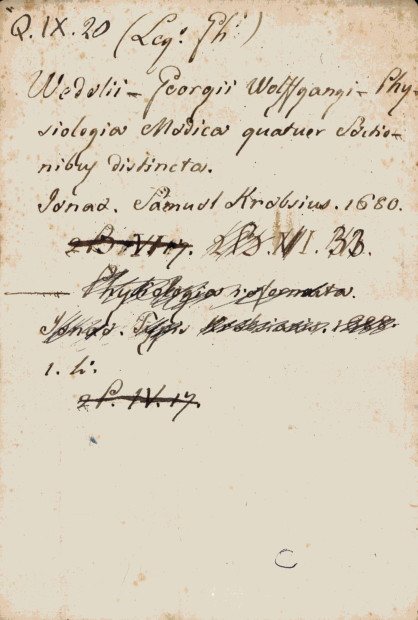 Q. IX. 20 (Leg. Ph.)
Wedelii - Georgii Wolffgangi - Phy-
siologia Medica quatuor Sectio-
nibus distincta.
Jenae. Samuel Krebsius. 1680.
2 B. VI. 17. B. VI. 33.
— Physiologia reformata.
Jenae. Typ. 1688.
1. li.
2 P. IV. 17.
C